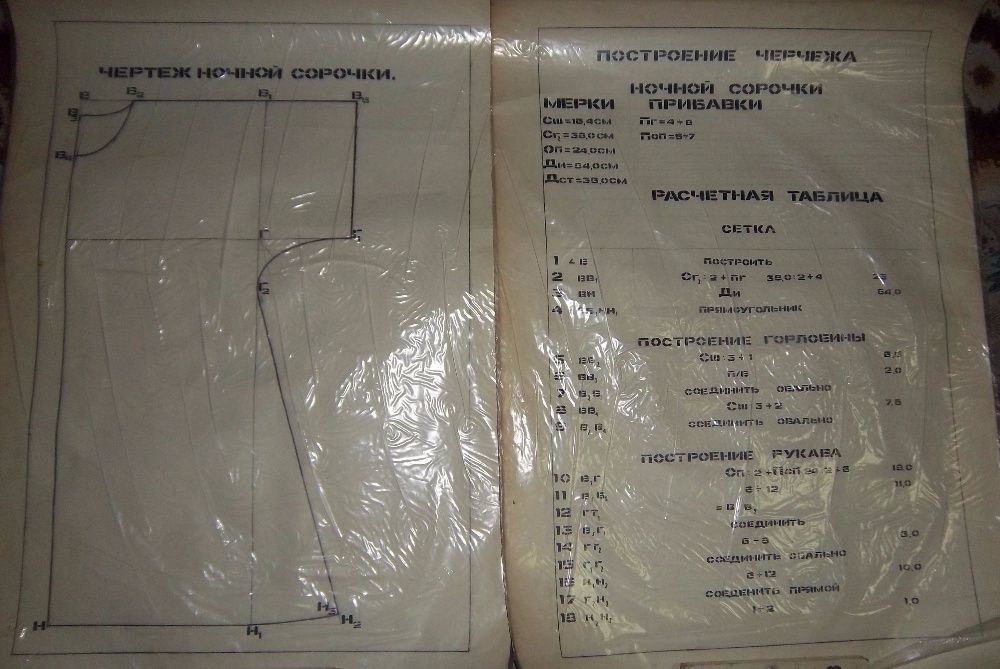 ЧЕРТЕЖ НОЧНОЙ СОРОЧКИ.
В В₂ В₁ В₅
В₃
В₄
Г Г₁
Г₂
Н Н₁ Н₃ Н₂
ПОСТРОЕНИЕ ЧЕРЧЕЖА
НОЧНОЙ СОРОЧКИ
МЕРКИ ПРИБАВКИ
Сш=18,4см Пг=4÷6
Сг₁=38,0см Поп=5÷7
Оп=24,0см
Ди=84,0см
Дст=38,0см
РАСЧЕТНАЯ ТАБЛИЦА
СЕТКА
1 ∠ В ПОСТРОИТЬ
2 ВВ₁ Сг₁:2+Пг 38,0:2+4
3 ВН Ди 84,0
4 ПРЯМОУГОЛЬНИК
ПОСТРОЕНИЕ ГОРЛОВИНЫ
5 ВВ₂ Сш:3+1
6 ВВ₃ 2,0
7 В₂В СОЕДИНИТЬ ОВАЛЬНО
8 ВВ₄ Сш:3+2 7,5
9 В₂В₄ СОЕДИНИТЬ ОВАЛЬНО
ПОСТРОЕНИЕ РУКАВА
10 В₁Г Оп:2+Поп 24:2+6 18,0
11 В₁В₅ 8÷12 11,0
12 ГГ₁ =В₁В₅
13 В₅Г₁ СОЕДИНИТЬ
14 ГГ₂ 6÷8 8,0
15 Г₁Г₂ СОЕДИНИТЬ ОВАЛЬНО
16 Н₁Н₂ 8÷12 10,0
17 Г₂Н₂ СОЕДЕНИТЬ ПРЯМОЙ
18 Н₂Н₃ 1÷2 1,0